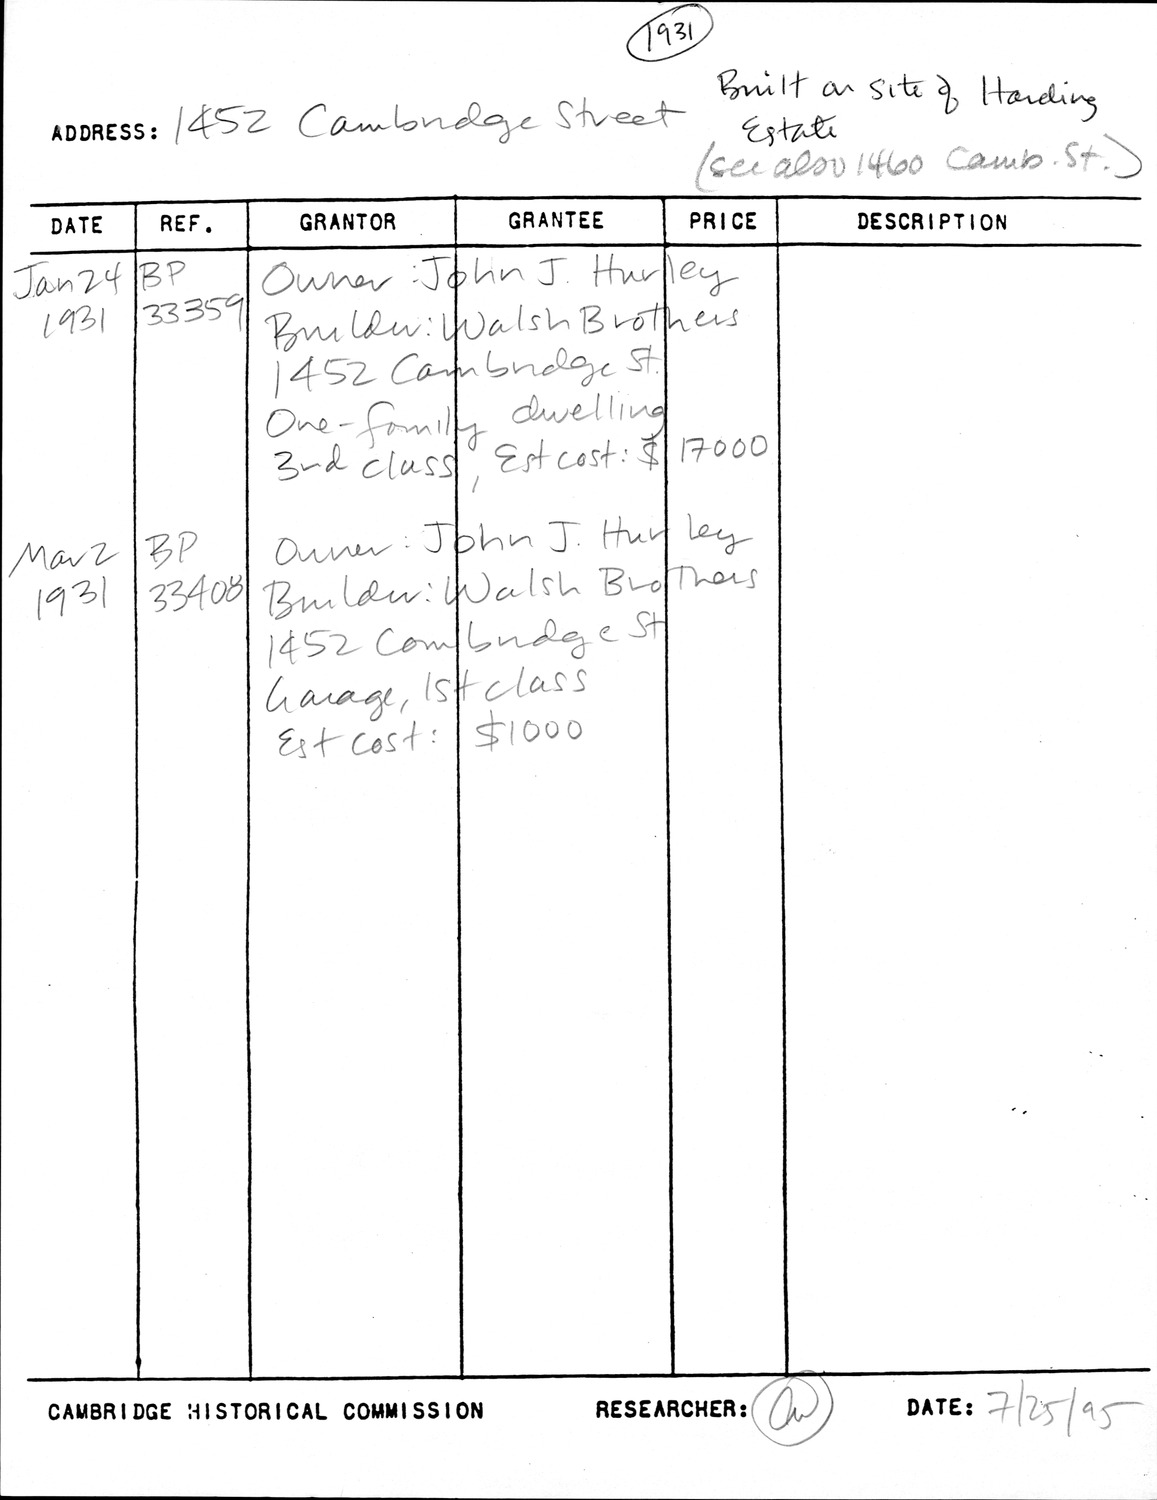 1931
Built on site of Harding
Estate
(see also 1460 Camb. St.)
ADDRESS: 1452 Cambridge Street
DATE REF. GRANTOR GRANTEE PRICE DESCRIPTION
Jan 24 BP Owner: John J. Hurley
1931 33359 Builder: Walsh Brothers
1452 Cambridge St.
One-family dwelling
3rd class, Est cost: $ 17000
Mar 2 BP Owner: John J. Hurley
1931 33408 Builder: Walsh Brothers
1452 Cambridge St
Garage, 1st class
Est cost: $1000
CAMBRIDGE HISTORICAL COMMISSION RESEARCHER: DATE: 7/25/95